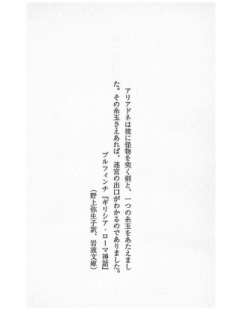 アリアドネは彼に怪物を突く剣と、一つの糸玉をあたえまし
た。その糸玉さえあれば、迷宮の出口がわかるのでありました。
ブルフィンチ『ギリシア・ローマ神話』
（野上弥生子訳、岩波文庫）